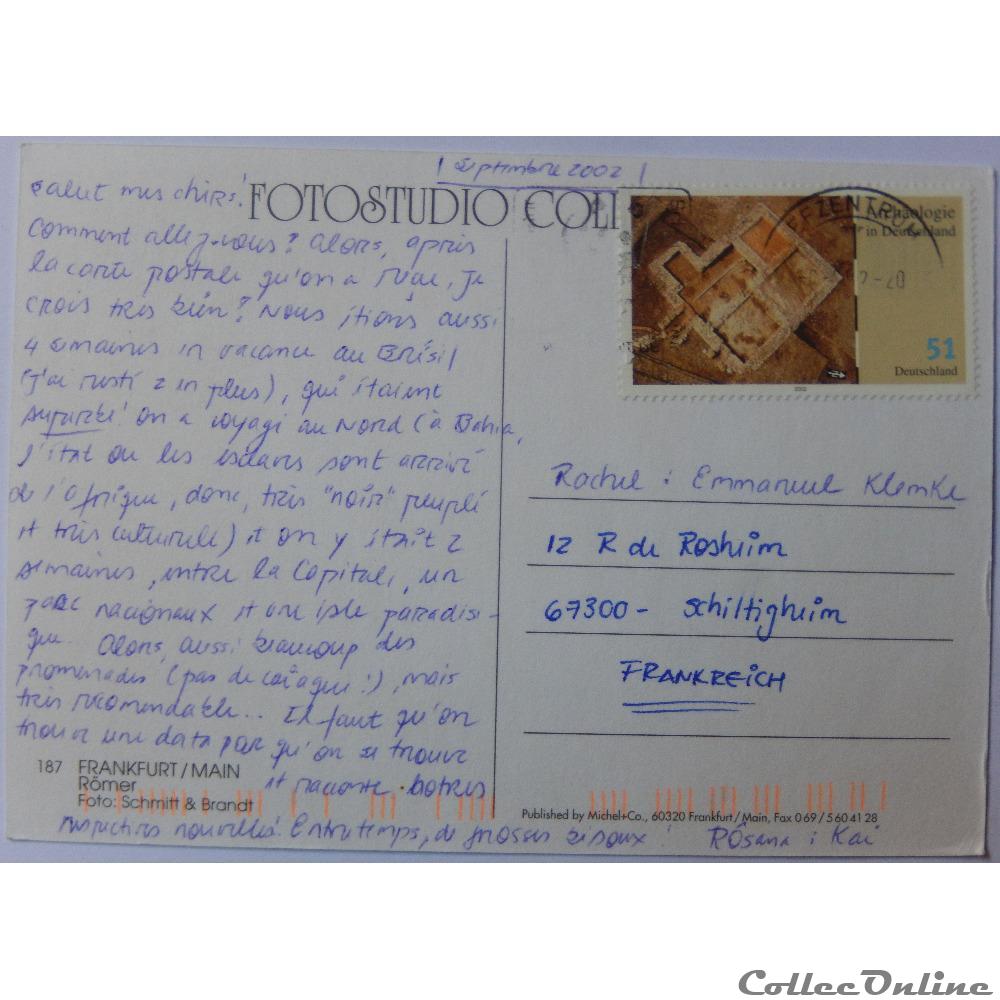 1 septembre 2002
FOTOSTUDIO COLI
Salut mes chers!
Comment allez-vous? Alors, après
la carte postale qu'on a reçue, je
crois très bien? Nous étions aussi
4 semaines en vacance au Brésil
(j'ai resté 2 en plus), qui étaient
superbe! on a voyagé au Nord (à Bahia,
l'état ou les esclaves sont arrivé
de l'afrique, donc, très "noir" peuplé
et très culturele) et on y était 2
semaines, entre la Capitale, un
parc nacionaux et une isle paradisi-
que... Alors, aussi beaucoup des
promenades (pas de !), mais
très recomendable... Il faut qu'on
trouve une data par qu'on se trouve
et raconte botres
respectives nouvelles! Entretemps, de grosses bisoux! Rôsana e Kai
187 FRANKFURT/MAIN
Römer
Foto: Schmitt & Brandt
ZENTRUM
Archäologie
in Deutschland
51
Deutschland
2002
Rachel e Emmanuel Klemke
12 R de Rosheim
67300 - Schiltigheim
FRANKREICH
Published by Michel+Co., 60320 Frankfurt/Main, Fax 069/5604128
CollecOnline